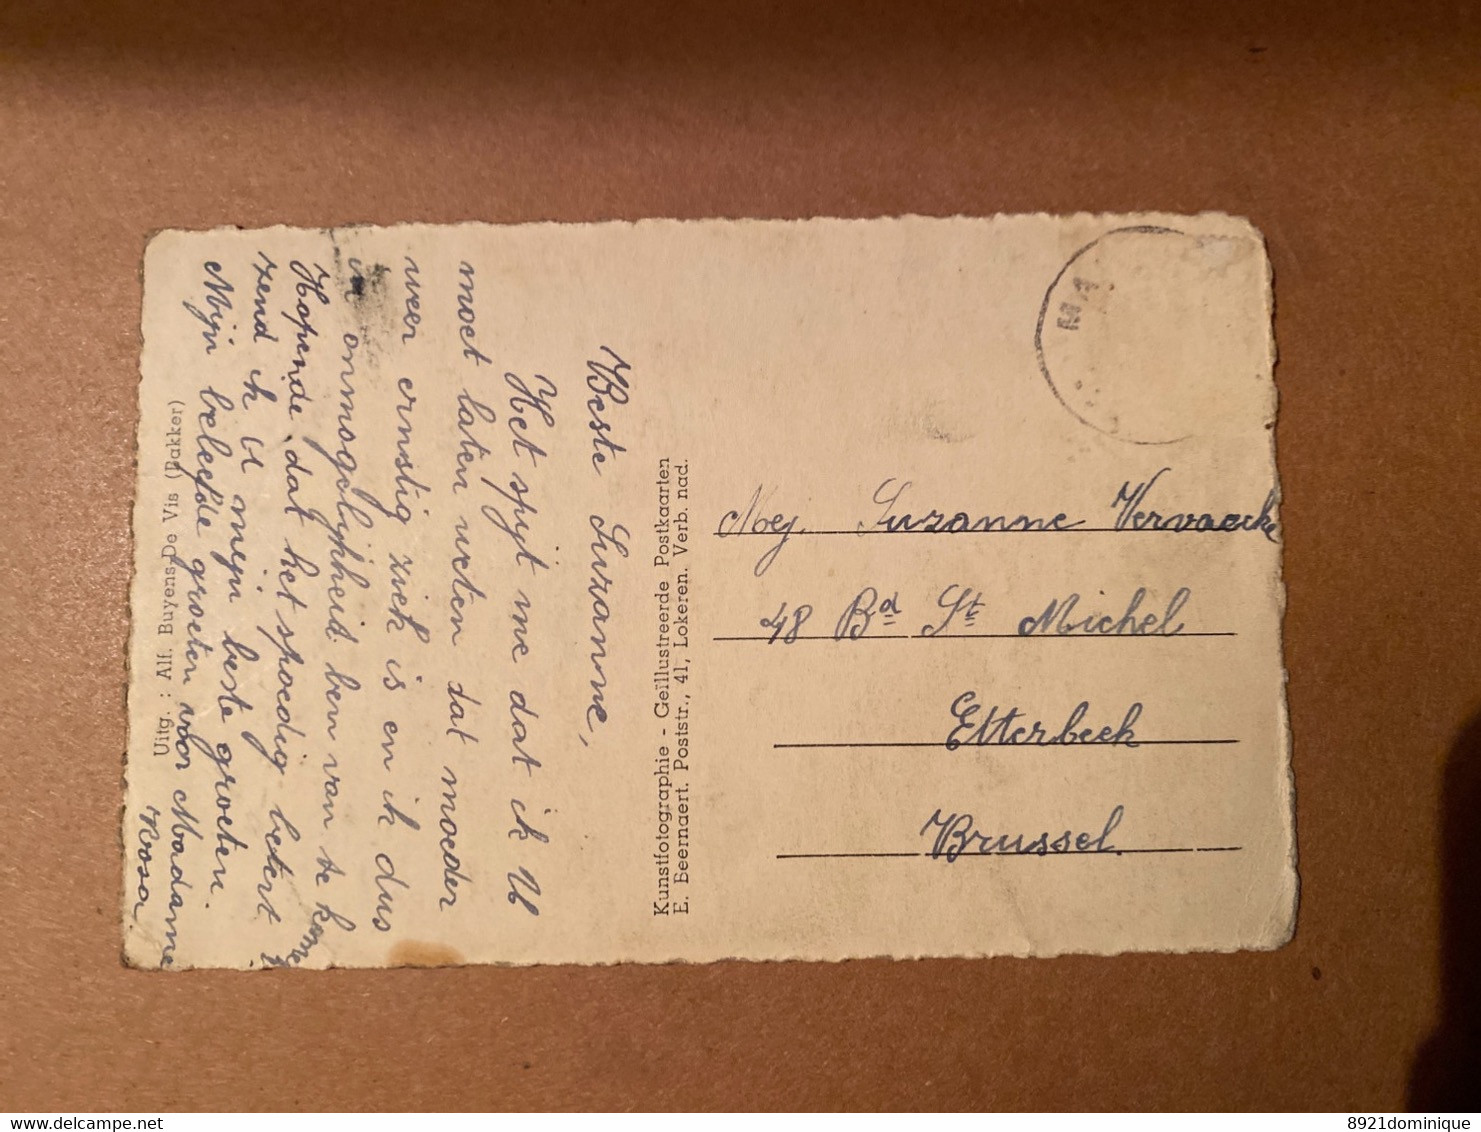 Beste Suzanne,
Het spijt me dat ik U
moet laten weten dat moeder
weer ernstig ziek is en ik dus
in onmogelijkheid ben van te komen
Hopende dat het spoedig betert
zend ik U mijn beste groeten.
Mijn beleefde groeten voor Madame
Rosa
Uitg. : Alf. Buyens-De Vis (Bakker)
Kunstfotographie - Geïllustreerde Postkaarten
E. Beernaert. Poststr., 41, Lokeren. Verb. nad.
Mej. Suzanne Vervaecke
48 Bd St Michel
Etterbeek
Brussel.
8921dominique